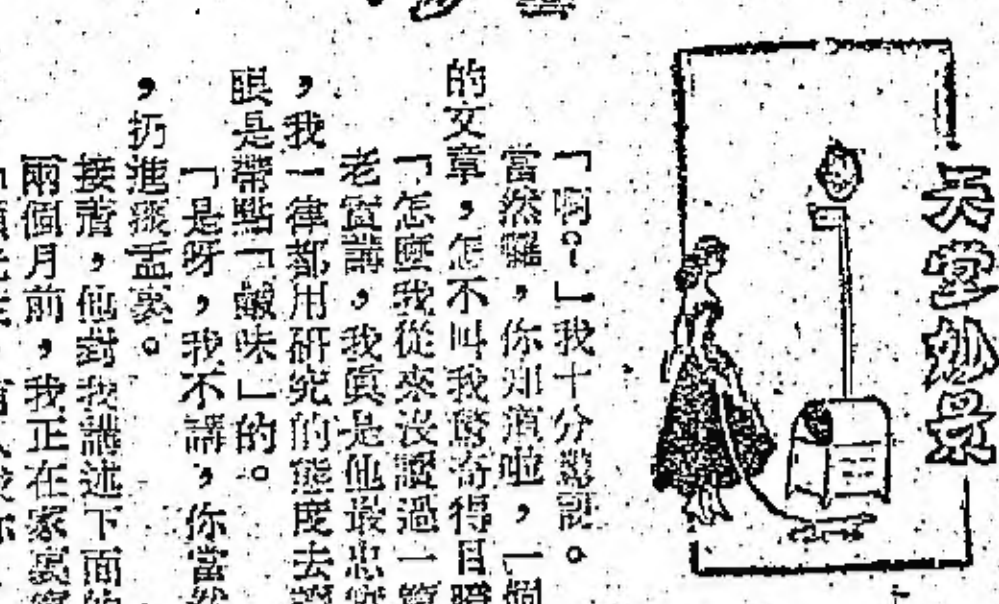 天堂妙景
「啊?」我十分驚訝。
當然囉,你知道啦,一個
的文章,怎不叫我驚奇得目瞪
「怎麼我從來沒讀過一篇
老實講,我眞是他最忠實
,我一律都用研究的態度去讀
眼是帶點「鹹味」的。
「是呀,我不講,你當然
,扔進痰盂裏。
接着,他對我講述下面的
兩個月前,我正在家裏